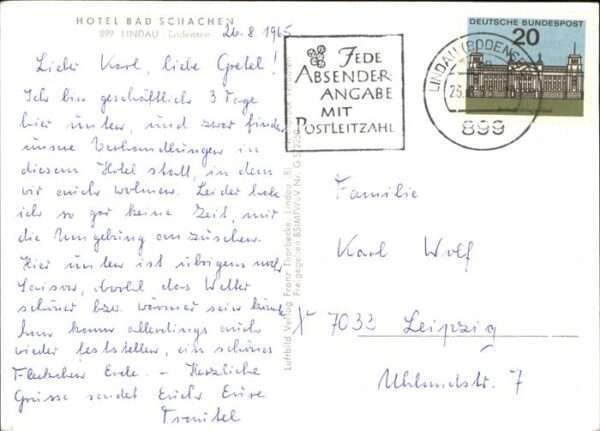 HOTEL BAD SCHACHEN
899 LINDAU Bodensee
26.8.1965
Lieber Karl, liebe Gretel!
Ich bin geschäftlich 3 Tage
hier unten, und zwar finden
unsere Verhandlungen in
diesem Hotel statt, in dem
wir auch wohnen. Leider habe
ich so gar keine Zeit, mir
die Umgebung anzusehen.
Hier unten ist übrigens noch
Saison, obwohl das Wetter
schöner bzw. wärmer sein könnte.
kann allerdings auch
wieder feststellen, ein schönes
Fleckchen Erde. - Herzliche
Grüsse sendet Euch Eure
Trautel
Luftbild Verlag Franz Thorbecke, Lindau (B)
Freigegeben BSfMfWuV Nr. G
JEDE
ABSENDER-
ANGABE
MIT
POSTLEITZAHL
DEUTSCHE BUNDESPOST
20
LINDAU (BODENSEE)
899
Familie
Karl Wolf
X 7033 Leipzig
Uhlandstr. 7